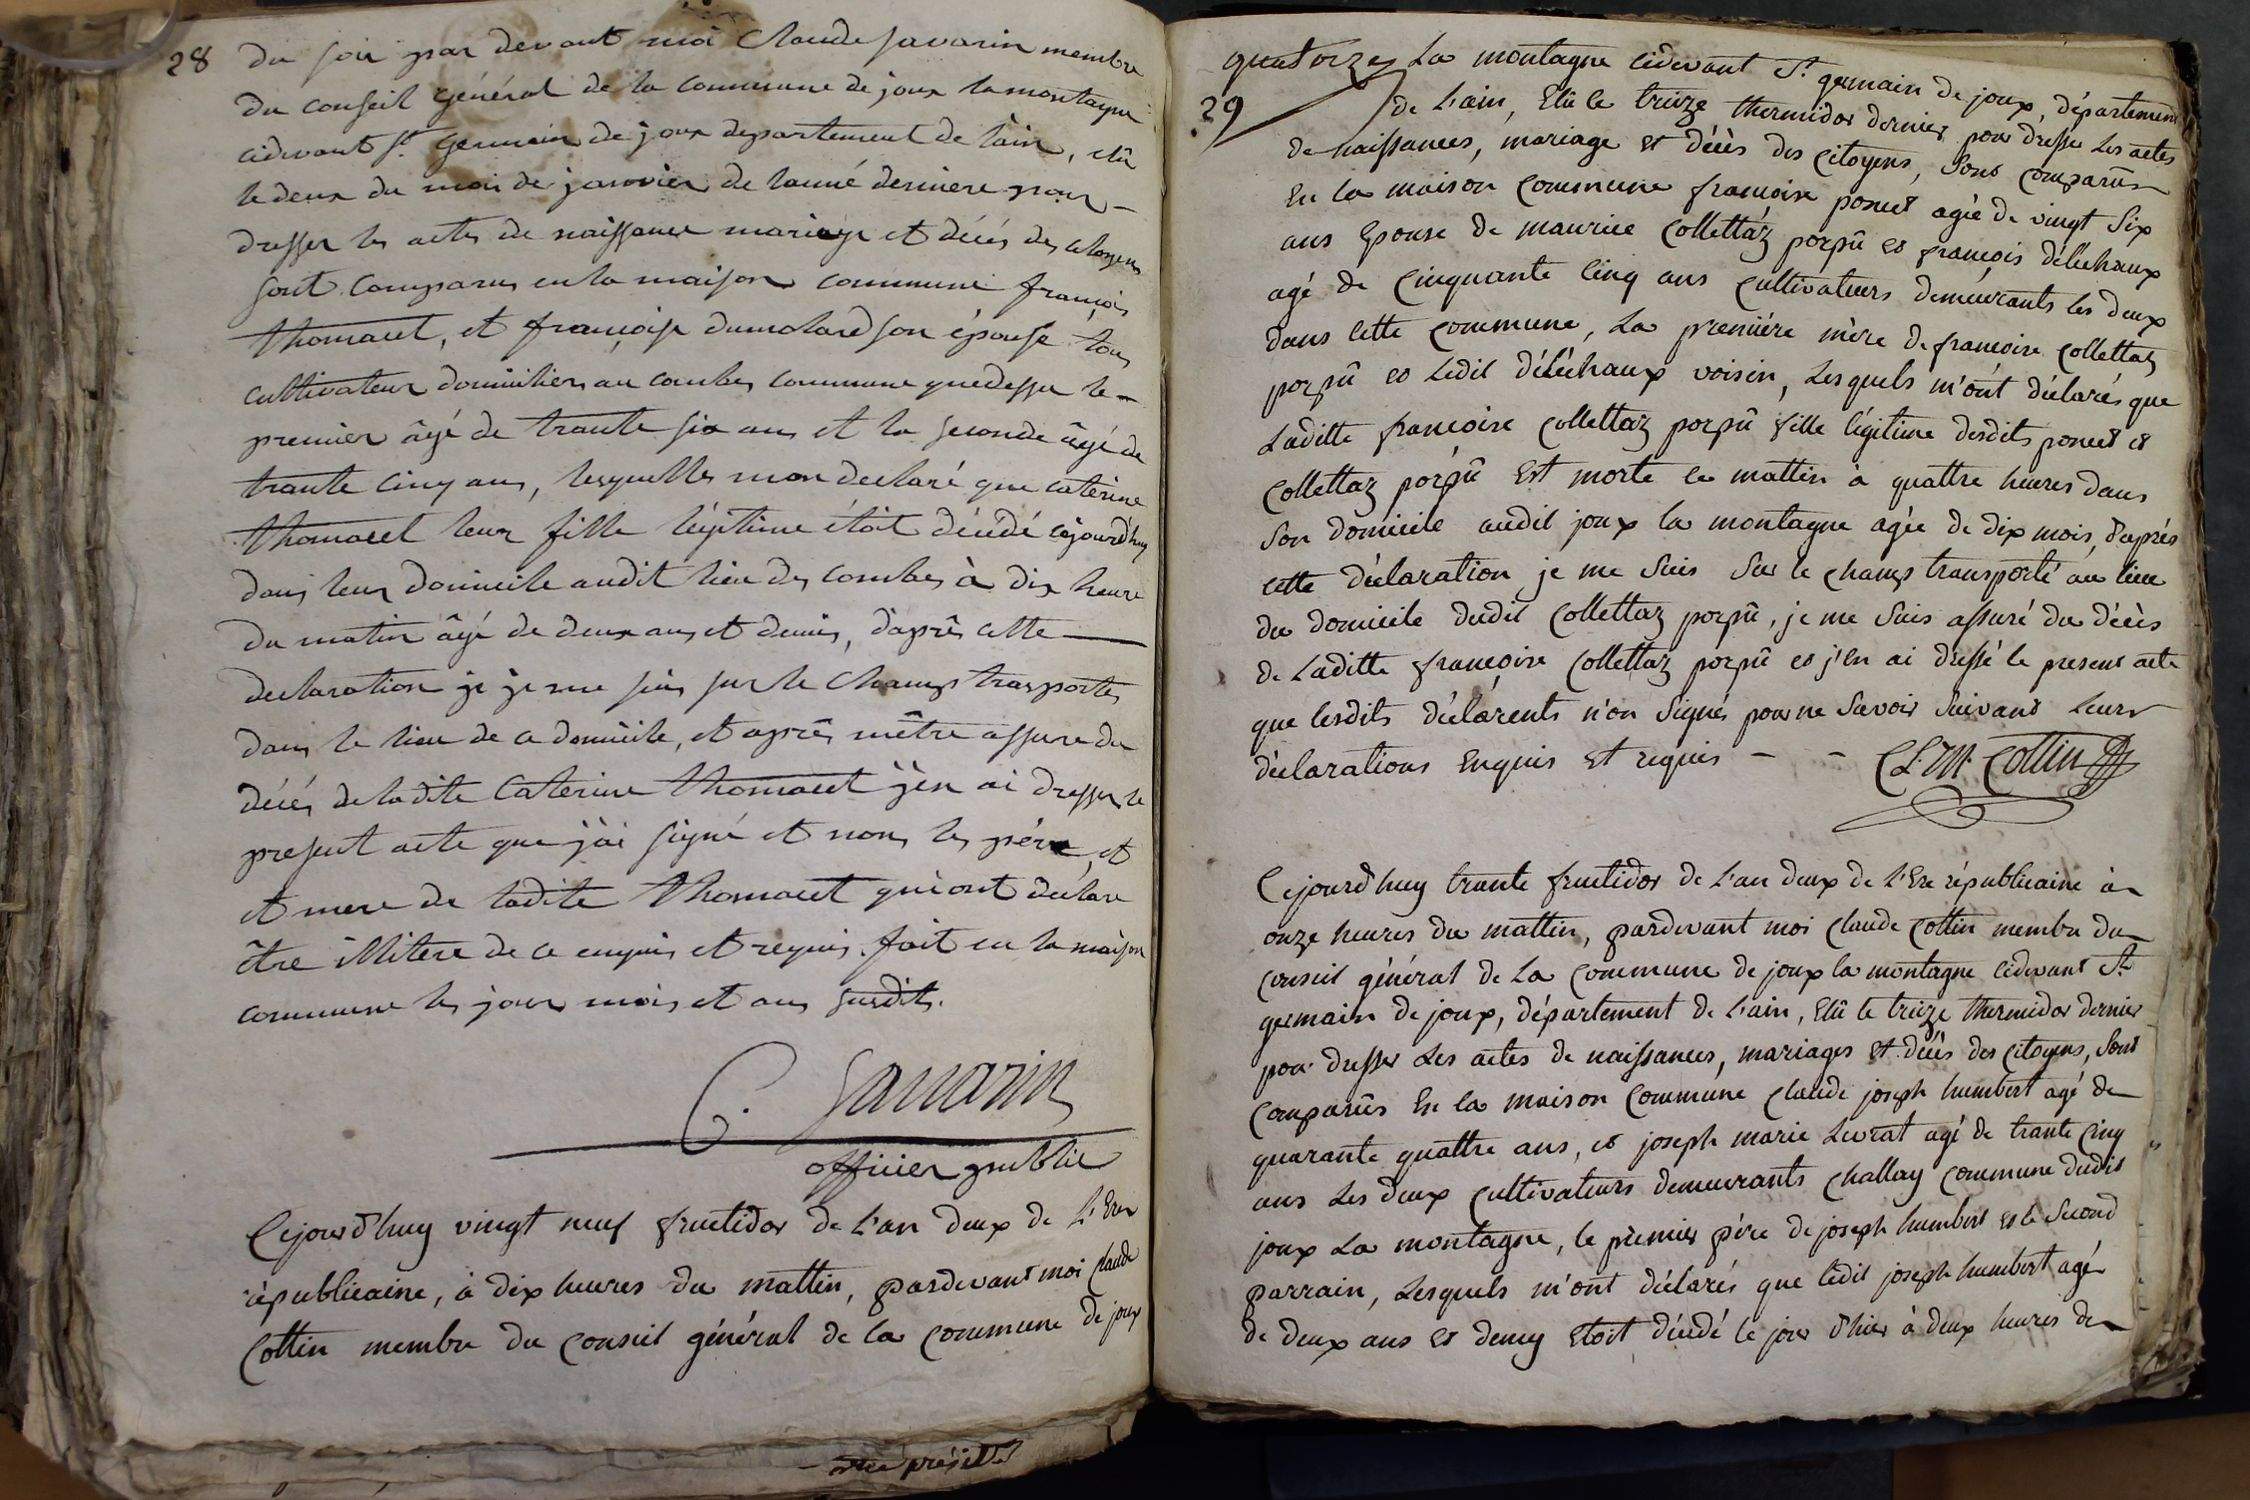 28
du soir par devant moi Claude savarin membre
du conseil général de la commune de joux la montagne
cidevant St. germain de joux departement de l'ain, elû
le deux du moi de janvier de l'anné derniere pour
dresser les actes de naissance mariage et décés des citoyens
sont comparus en la maison commune françois
thomasset, et françoise dumolard son épouse tous
cultivateur domicilier au combes commune que dessu le
premier âgé de trante six ans et la seconde âgé de
trante cinq ans, lesquelles mon declaré que caterine
thomasset leur fille légitime étoit décédé cejourd'huy
dans leur domicile audit lieu des combes à dix heure
du matin âgé de deux ans et demis, d'après cette
declaration je je me suis sur le champs trasportes
dans le lieu de ce domicile, et après m'être assure du
décés de ladite Caterine thomasset j'en ai dresser le
present acte que j'ai signé et nons les père, et
et mere de ladite thomasset qui ont déclare
être illitere de ce enquis et requis. fait en la maison
commune les jour mois et ans susdits.
C. Savarin
officier public
Cejourd'huy vingt neuf fructidor de l'an deux de l'Ere
républicaine, à dix heures du mattin, pardevant moi Claude
Cottin membre du conseil général de la commune de joux
quatorze La montagne cidevant St. germain de joux, département
29
de L'ain, Elû le treize thermidor dernier pour dresser Les actes
de naissances, mariage et décès des citoyens, Sont comparûs
En la maison commune françoise poncet agée de vingt Six
ans Epouse de maurice Collettaz porpû et françois délêchaux
agé de cinquante cinq ans cultivateurs demeurants les deux
dans cette commune, La premiére mère de françoise collettaz
porpû et Ledit délêchaux voisin, Lesquels m'ont déclarés que
Laditte françoise collettaz porpû fille légitime desdits poncet et
Collettaz porpû Est morte ce mattin à quattre heures dans
Son domicile audit joux la montagne agée de dix mois, d'aprés
cette déclaration je me Suis Sur le champ transporté au lieu
du domicile dudit Collettaz porpû, je me Suis assuré du décès
de Laditte françoise Collettaz porpû et j'en ai dressé le present acte
que lesdits déclarents n'on Signés pour ne Savoir Suivant Leurs
déclarations Enquis Et requis - - Cl. M. Cottin
Cejourd'huy trante fructidor de L'an deux de L'Ere républicaine à
onze heures du mattin, pardevant moi claude Cottin membre du
conseil général de La commune de joux la montagne cidevant St.
germain de joux, département de L'ain, Elû le treize thermidor dernier
pour dresser Les actes de naissances, mariages et décès des citoyens, Sont
comparûs En la maison commune claude joseph humbert agé de
quarante quattre ans, et joseph marie Levrat agé de trante cinq
ans Les deux cultivateurs demeurants challay commune dudit
joux La montagne, le prémier père de joseph humbert et le Second
parrain, Lesquels m'ont déclarés que ledit joseph humbert agé
de deux ans et demy Etoit décédé le jour d'hier à deux heures de